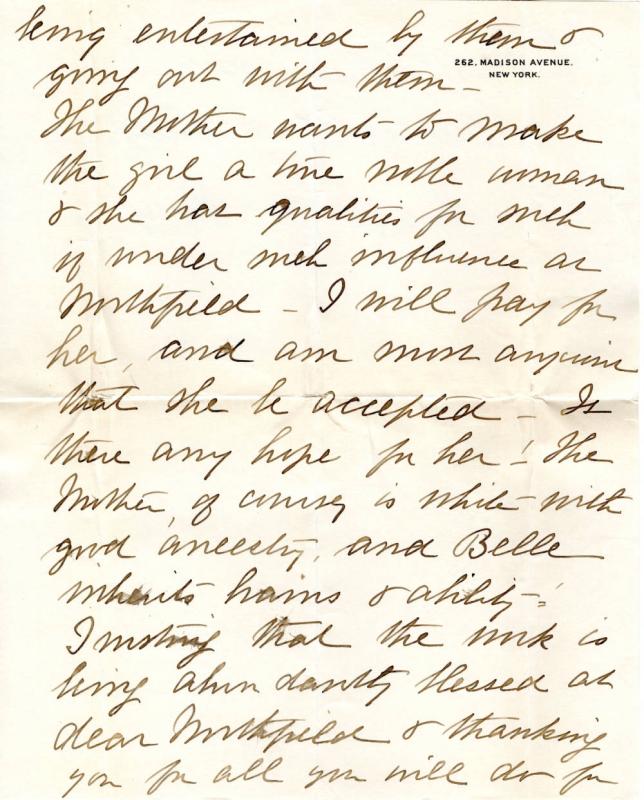 being entertained by them &
262, MADISON AVENUE.
NEW YORK.
going out with them -
The Mother wants to make
the girl a true noble woman
& she has qualities for such
if under such influence as
Northfield - I will pay for
her, and am most anxious
that she be accepted - Is
there any hope for her! The
Mother, of course, is white - with
good ancestry, and Belle
inherits brains & ability -!
Trusting that the work is
being abundantly blessed at
dear Northfield & thanking
you for all you will do for